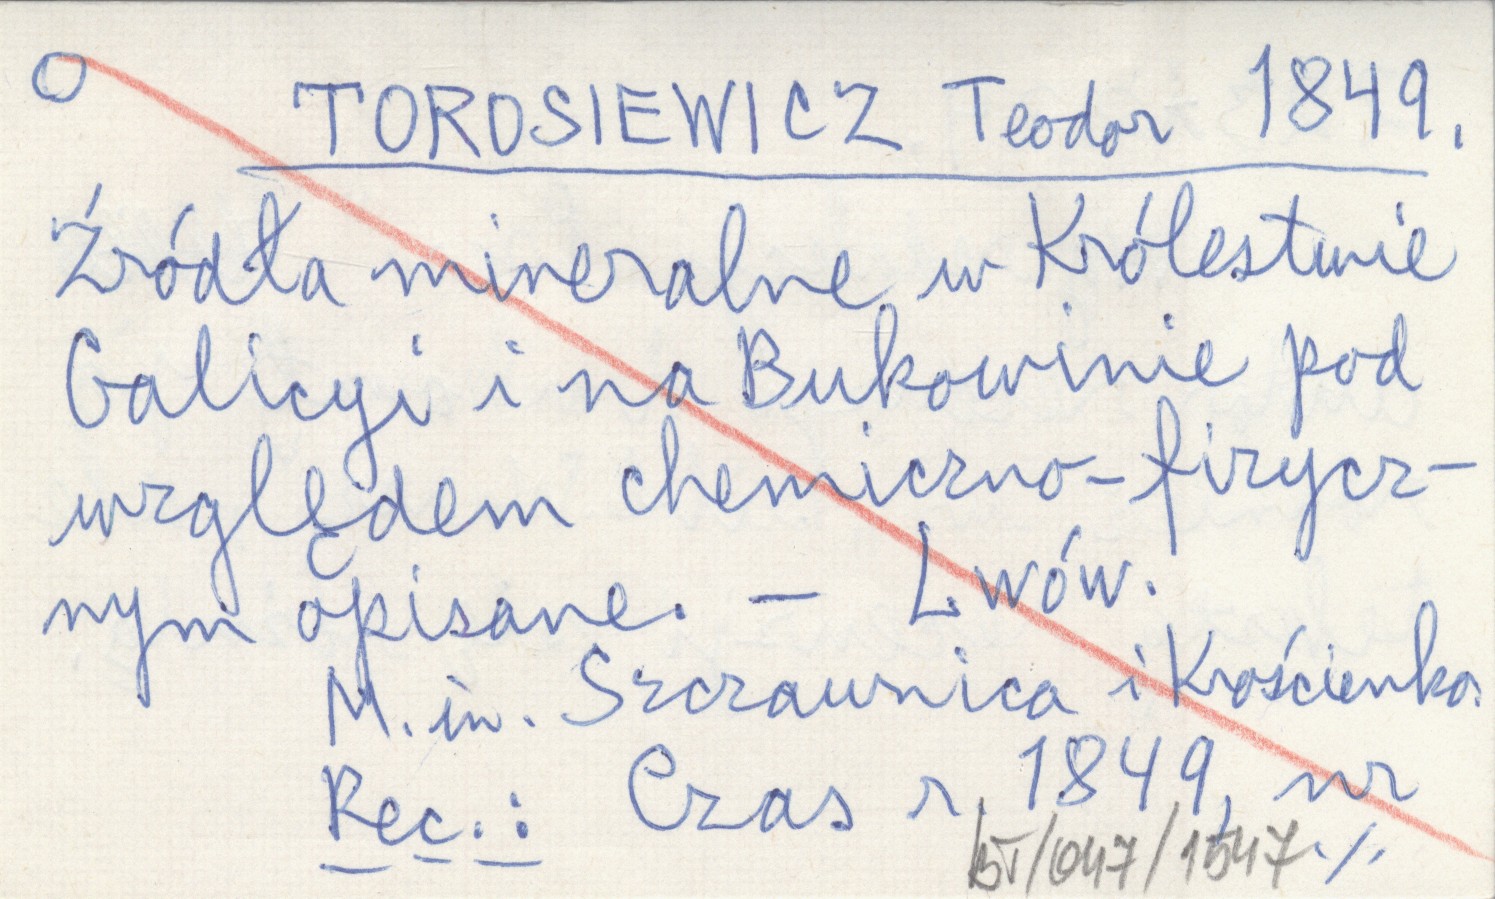 O TOROSIEWICZ Teodor 1849.
Źródła mineralne w Królestwie
Galicyi i na Bukowinie pod
względem chemiczno-fizycz-
nym opisane. — Lwów.
M. in. Szczawnica i Krościenko.
Rec.: Czas r. 1849, nr
BT/047/1547 ./.